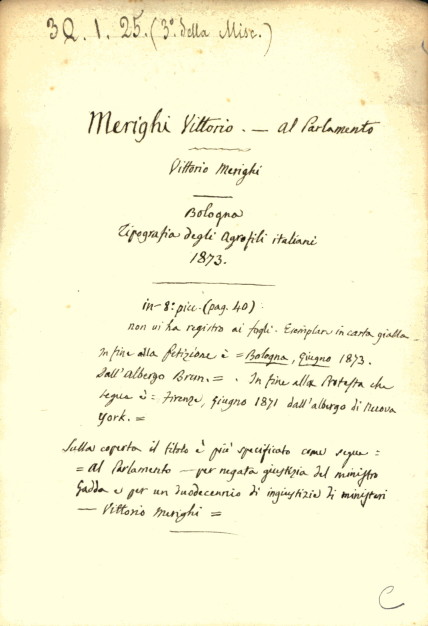 3Q. 1. 25. (3°. della Misc.)
Merighi Vittorio. — Al Parlamento
Vittorio Merighi
Bologna
Tipografia degli Agrofili italiani
1873.
in-8°. picc. (pag. 40)
non vi ha registro ai fogli. Esemplare in carta gialla.
In fine alla Petizione è = Bologna, Giugno 1873.
Dall'Albergo Brun. = . In fine alla Protesta che
segue è = Firenze, Giugno 1871 dall'albergo di Nuova
York. =
Sulla coperta il titolo è più specificato come segue =
= Al Parlamento — per negata giustizia del ministro
Gadda e per un duodecennio di ingiustizie di ministeri
— Vittorio Merighi =
C